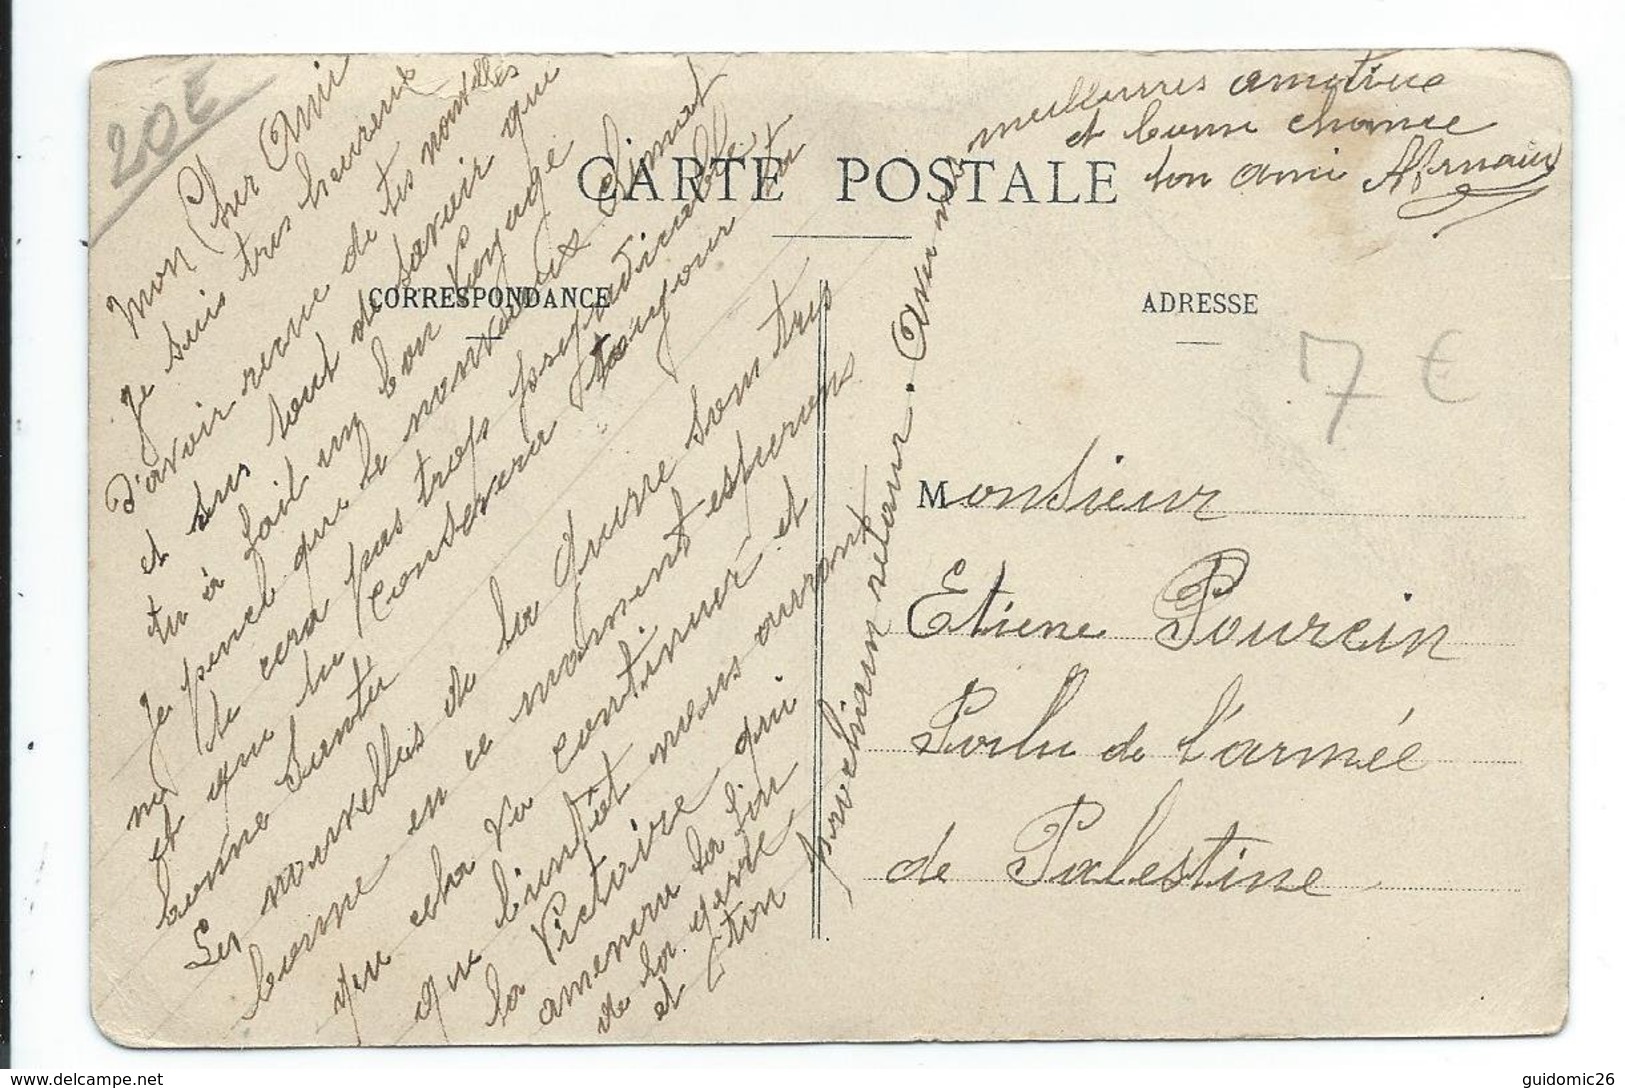 20€
CARTE POSTALE
CORRESPONDANCE
ADRESSE
7 €
Mon Cher Ami
Je suis tres heureux
d'avoir recue de tes nouvelles
et surs tout de savoir que
tu à fait un bon voyage
Je pense que le nouveaux climat
ne te cera pas trops prejudiciable
et que tu conservera toujour ta
bonne Santé
Les nouvelles de la Guerre son tres
bonne en ce moment esperons
que cela va continuer et
que bientôt nous auront
la Victoire qui
amenera la fin
de la guerre
et ton prochain retour. Avec mes
meilleures amitiee
et bonne chance
ton ami Arnaux
Monsieur
Etiene Pourcin
Poilu de l'armée
de Palestine
guidomic26